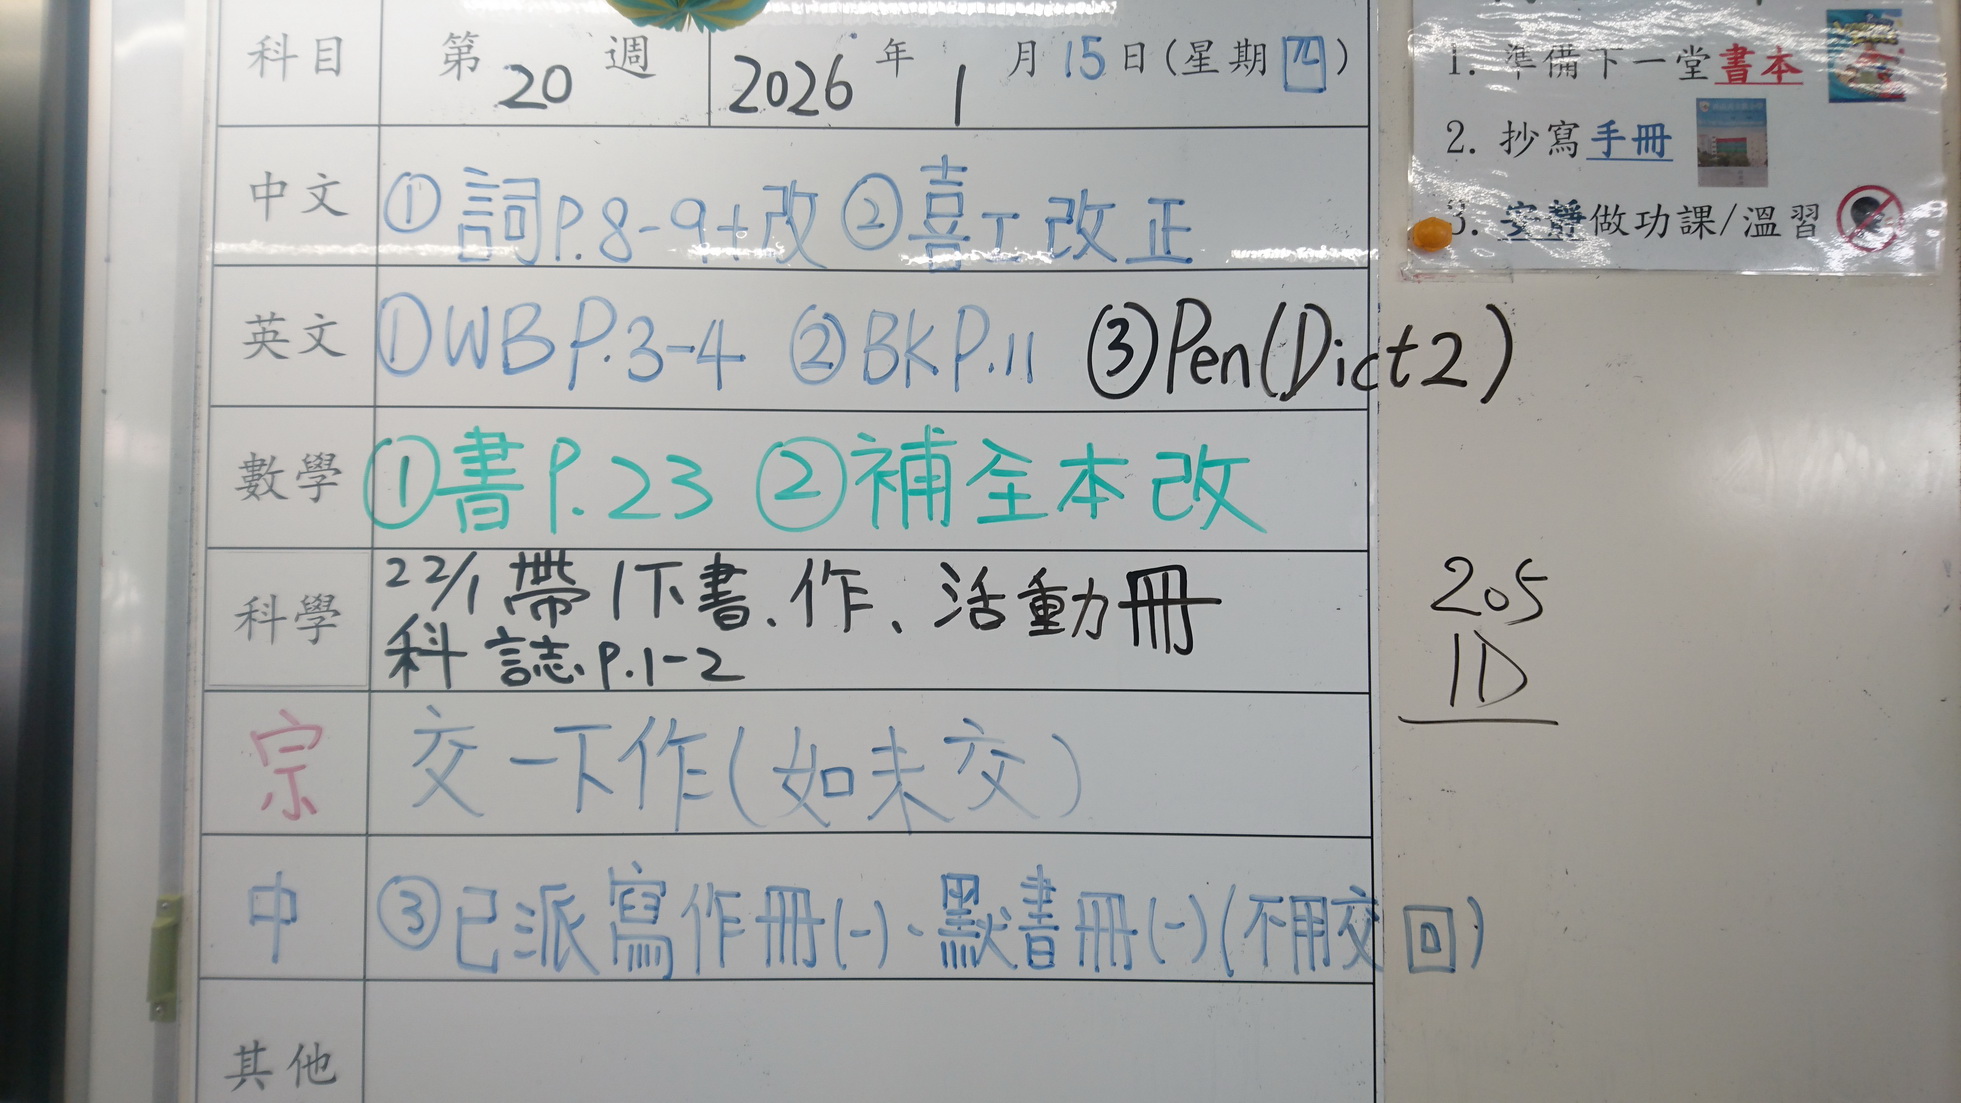 科目 第 20 週 2026 年 1 月 15 日 (星期 四)
中文 ① 詞P.8-9+改 ② 喜工改正
英文 ① WB P.3-4 ② BK P.11 ③ Pen(Dict 2)
數學 ① 書P.23 ② 補全本改
科學 22/1 帶1下書、作、活動冊
科誌P.1-2
宗 交一下作(如未交)
中 ③ 已派寫作冊(一)、默書冊(一)(不用交回)
其他
1. 準備下一堂書本
2. 抄寫手冊
3. 安靜做功課/溫習
205
1D